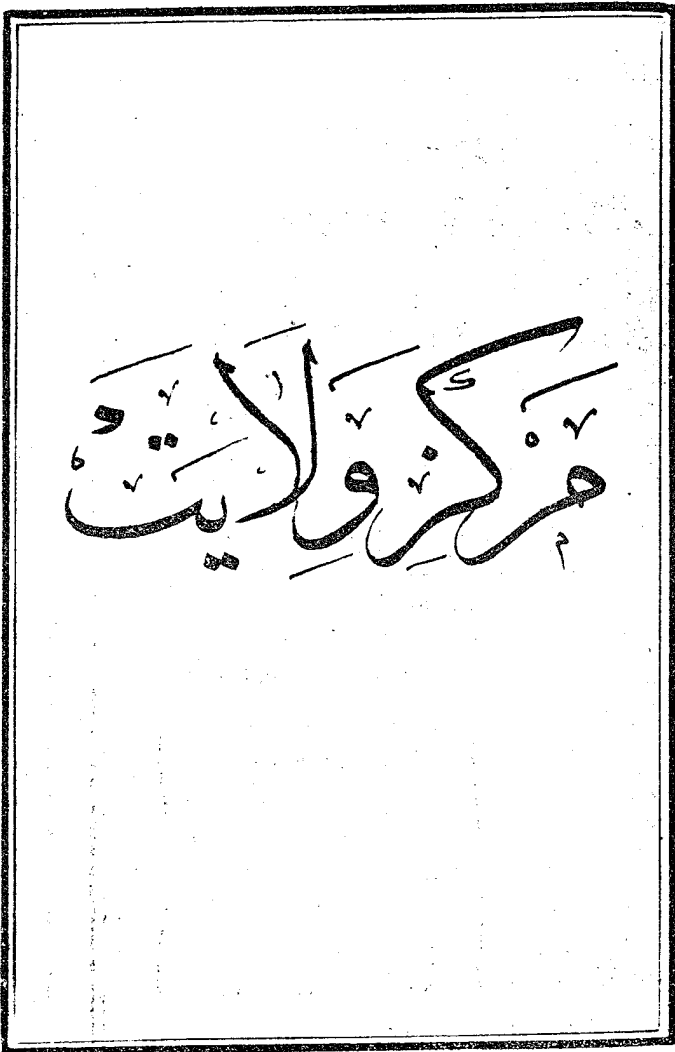 مَرْكَزِ وِلَايَتْ